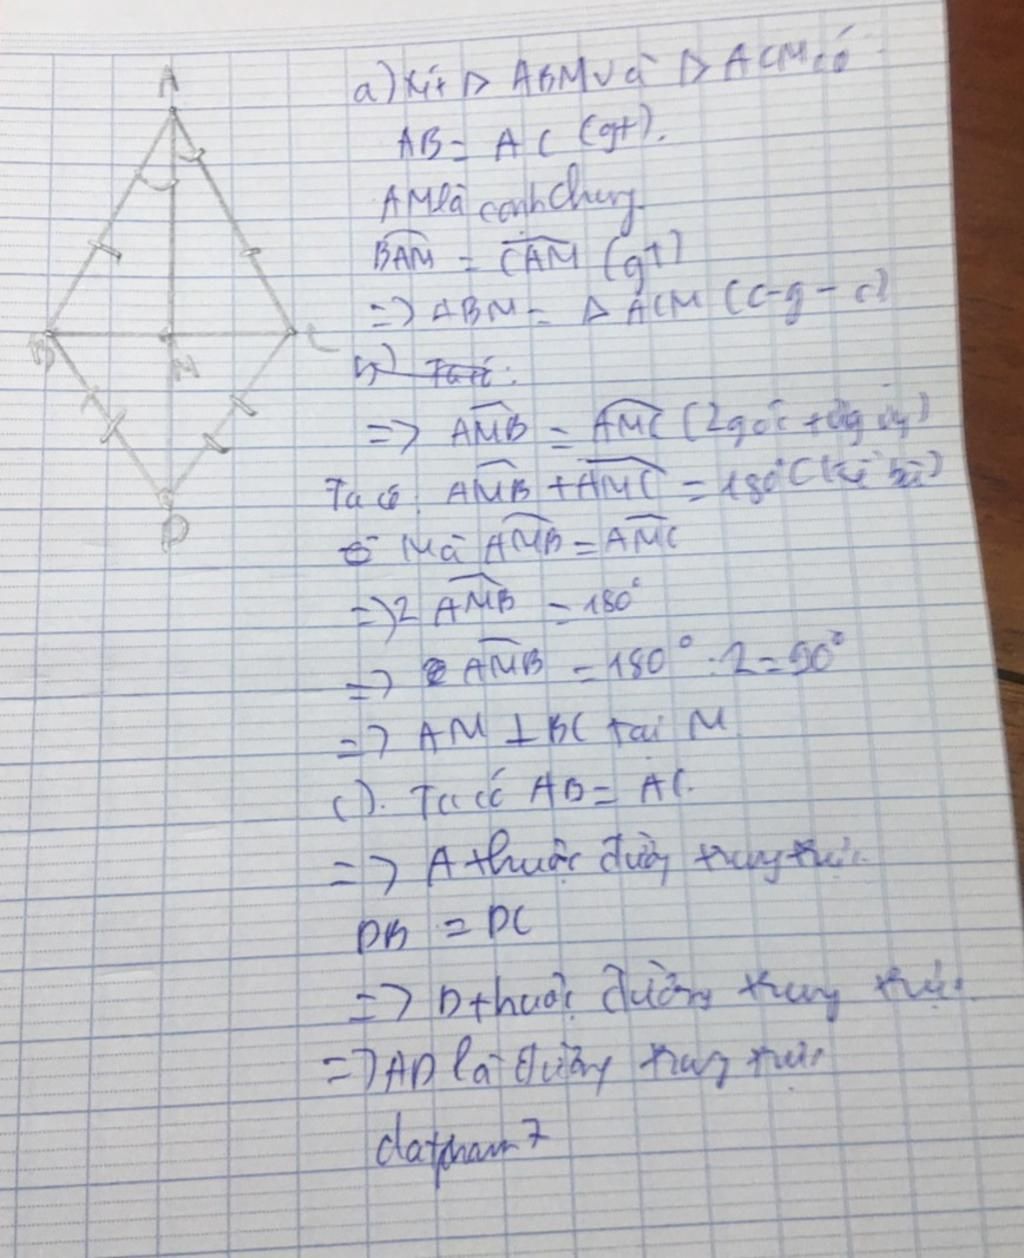 A
B
M
C
D
a) Xét Δ ABM và Δ ACM có
AB = AC (gt).
AM là cạnh chung.
BAM = CAM (gt)
=> ABM = Δ ACM (c-g-c)
b) Ta có:
=> AMB = AMC (2 góc tứg ứg)
Ta có: AMB + AMC = 180° (kề bù)
Mà AMB = AMC
=> 2 AMB = 180°
=> AMB = 180° : 2 = 90°
=> AM ⊥ BC tại M
c). Ta có AB = AC.
=> A thuộc đường trung trực
DB = DC
=> D thuộc đường trung trực
=> AD là đường trung trực
datpham7